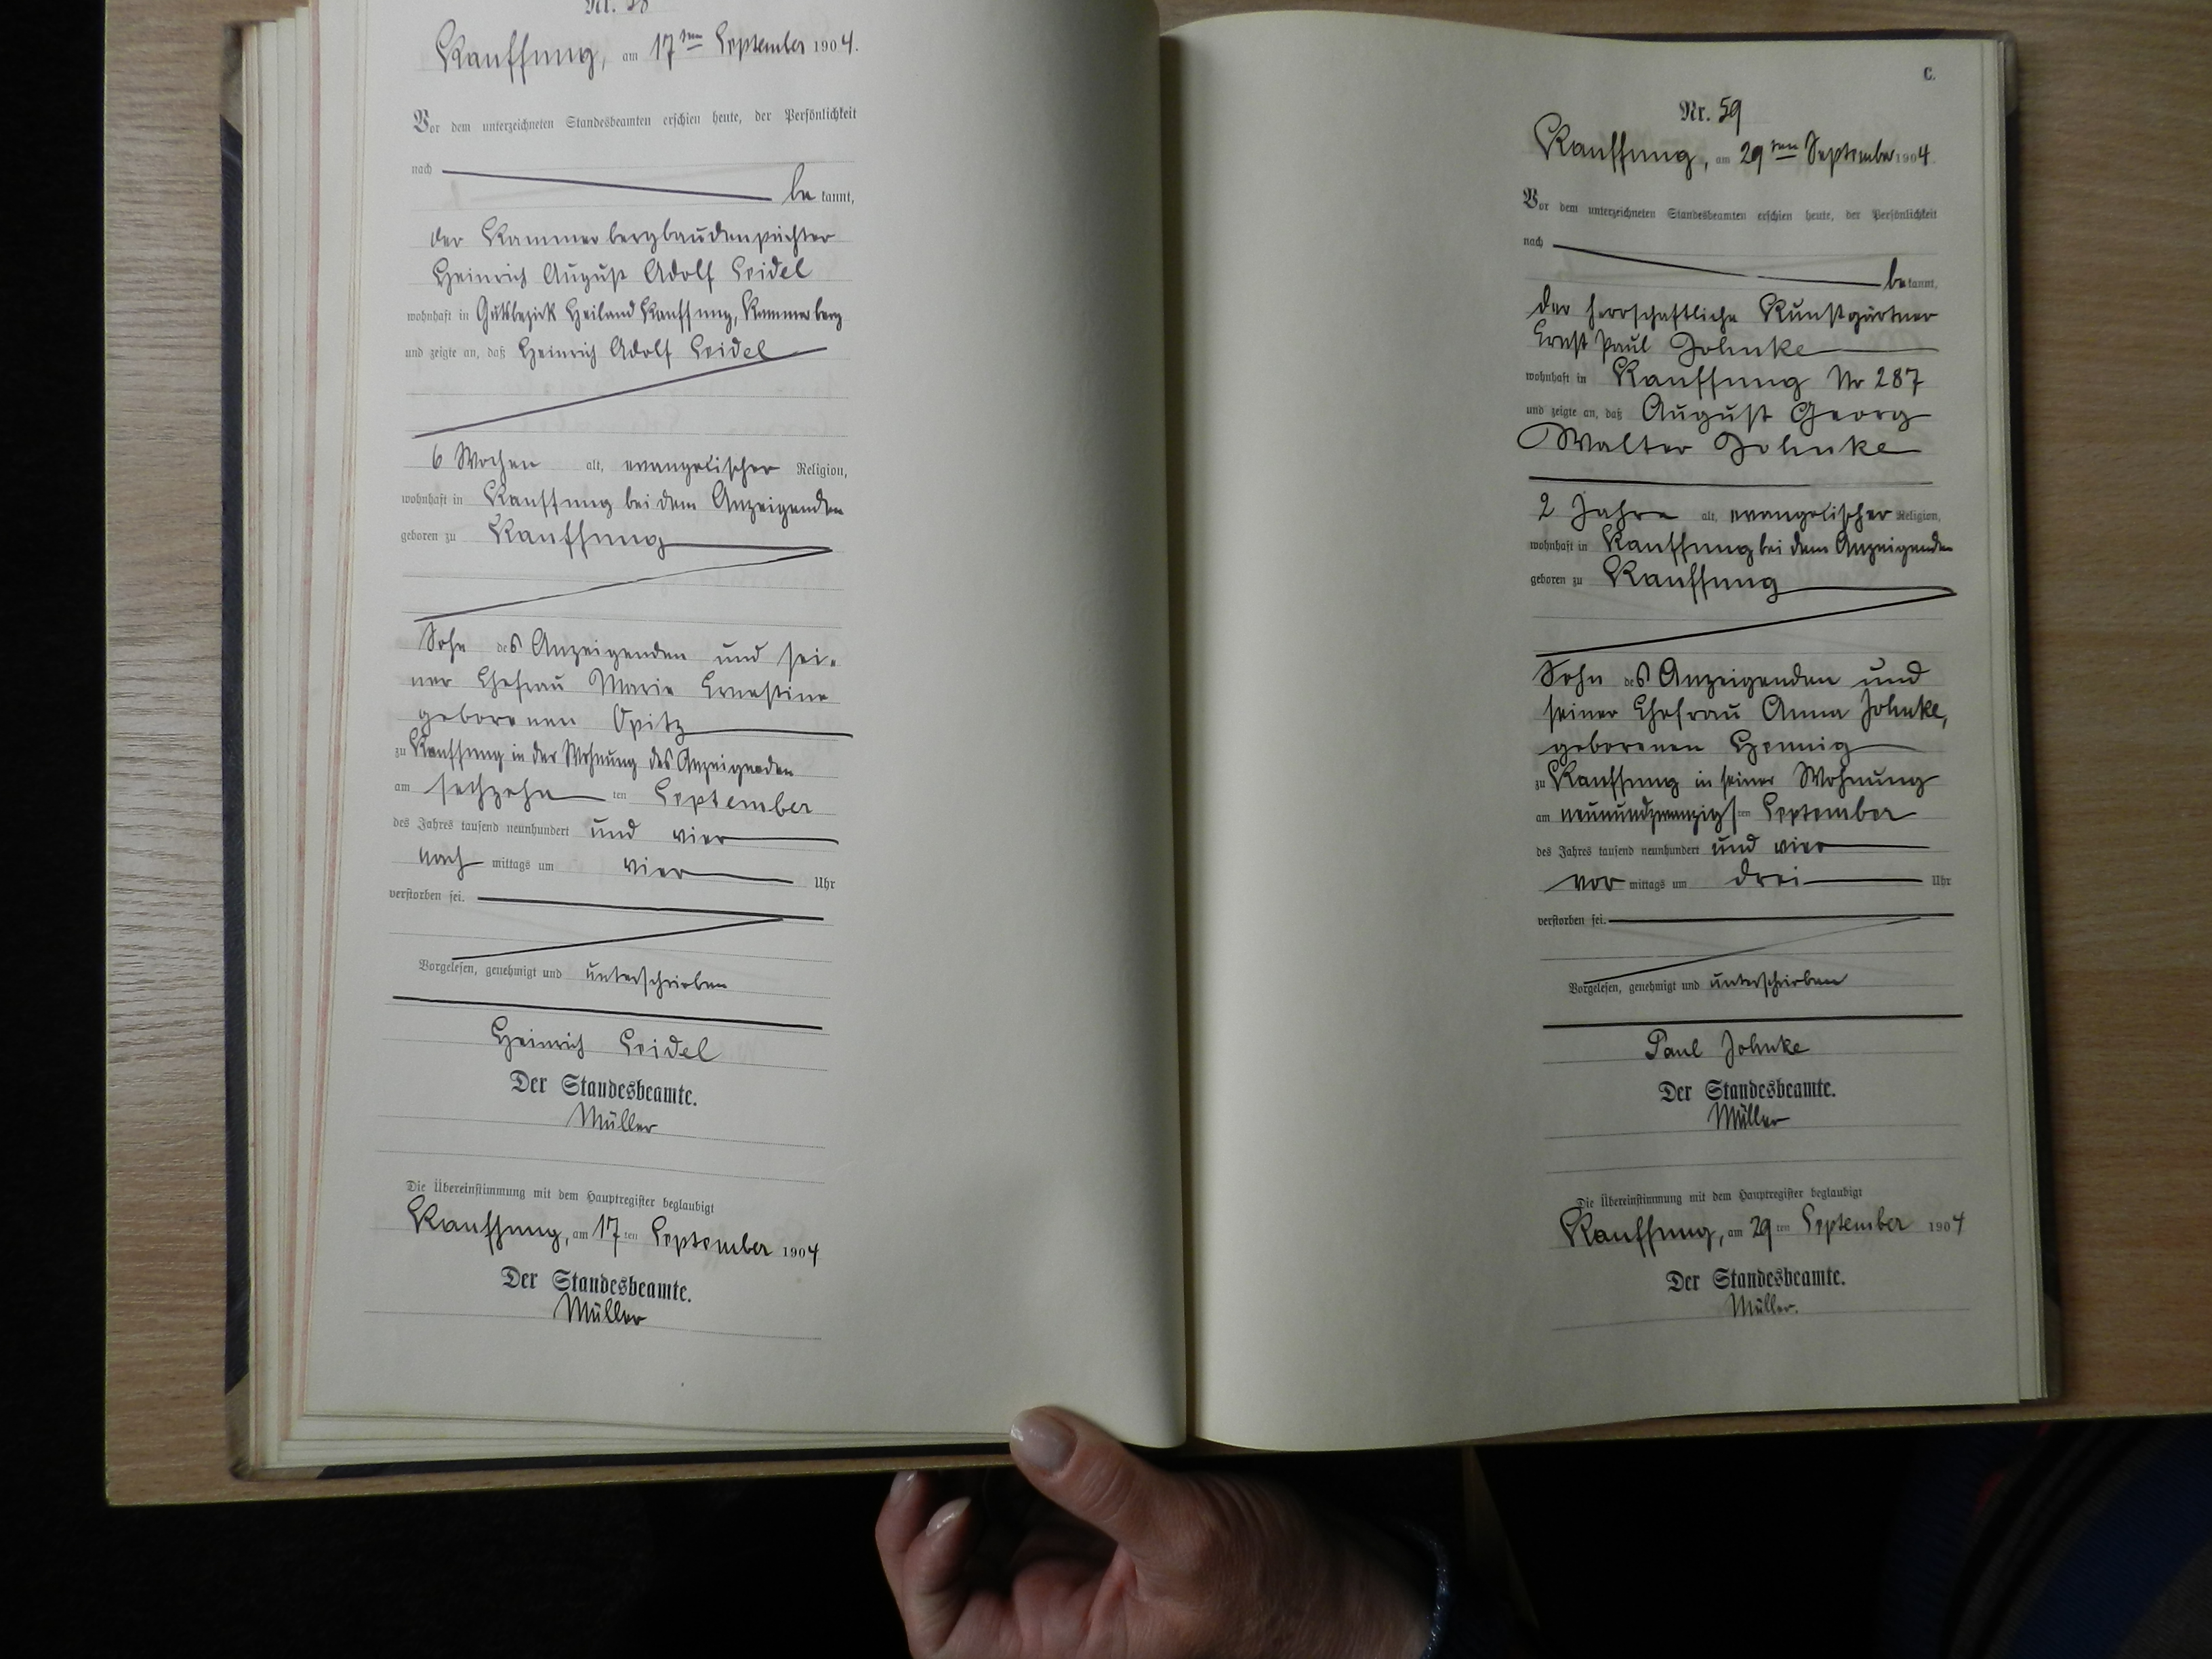 Nr. 58
Kauffung, am 17ten September 1904.
Vor dem unterzeichneten Standesbeamten erschien heute, der Persönlichkeit
nach
be kannt,
der Kammerbergbaudenpächter
Heinrich August Adolf Seidel
wohnhaft in Gutsbezirk Heiland Kauffung, Kammerberg
und zeigte an, daß Heinrich Adolf Seidel
6 Wochen alt, evangelischer Religion,
wohnhaft in Kauffung bei dem Anzeigenden
geboren zu Kauffung
Sohn des Anzeigenden und sei-
ner Ehefrau Marie Ernestine
geborenen Opitz
zu Kauffung in der Wohnung des Anzeigenden
am sechzehn ten September
des Jahres tausend neunhundert und vier
nach mittags um vier Uhr
verstorben sei.
Vorgelesen, genehmigt und unterschrieben
Heinrich Seidel
Der Standesbeamte.
Müller
Die Übereinstimmung mit dem Hauptregister beglaubigt
Kauffung, am 17 ten September 1904
Der Standesbeamte.
Müller
C.
Nr. 59
Kauffung, am 29ten September 1904
Vor dem unterzeichneten Standesbeamten erschien heute, der Persönlichkeit
nach
be kannt,
der herrschaftliche Kunstgärtner
Ernst Paul Johnke
wohnhaft in Kauffung Nr 287
und zeigte an, daß August Georg
Walter Johnke
2 Jahre alt, evangelischer Religion,
wohnhaft in Kauffung bei dem Anzeigenden
geboren zu Kauffung
Sohn des Anzeigenden und
seiner Ehefrau Anna Johnke,
geborenen Hennig
zu Kauffung in seiner Wohnung
am neunundzwanzigs ten September
des Jahres tausend neunhundert und vier
vor mittags um drei Uhr
verstorben sei.
Vorgelesen, genehmigt und unterschrieben
Paul Johnke
Der Standesbeamte.
Müller
Die Übereinstimmung mit dem Hauptregister beglaubigt
Kauffung, am 29 ten September 1904
Der Standesbeamte.
Müller.